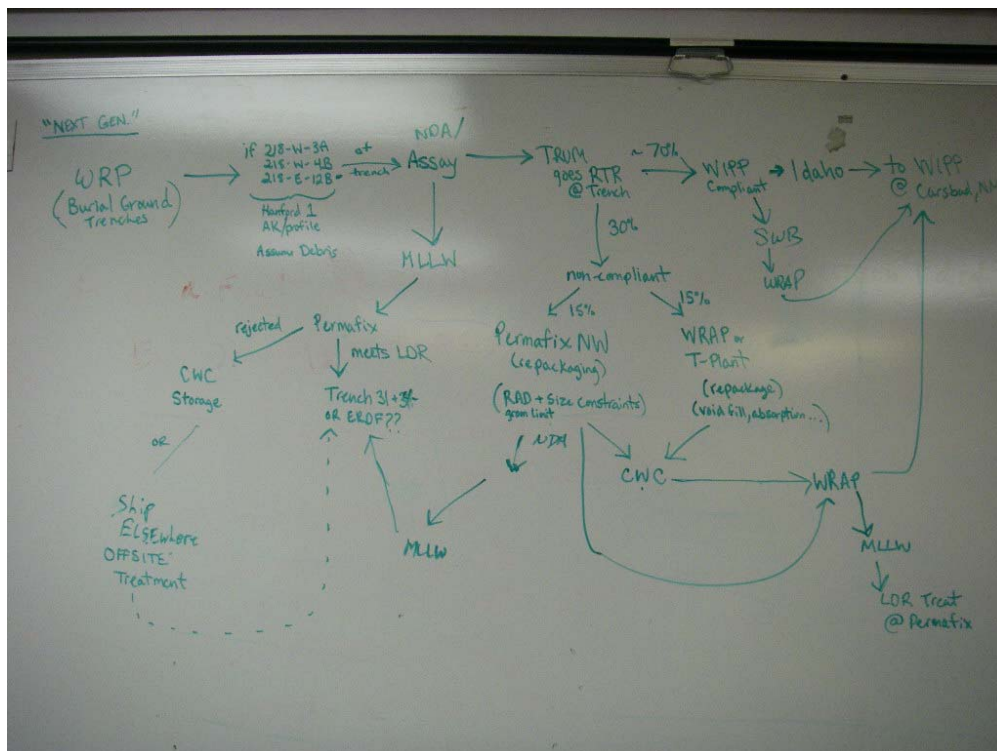 "NEXT GEN."
WRP
(Burial Ground
Trenches)
if 218-W-3A
218-W-4B
218-E-12B
at
trench
Hanford 1
AK/profile
Assume Debris
NDA/
Assay
TRUM
goes RTR
@ Trench
~ 70%
WIPP
Compliant
Idaho
to WIPP
@ Carsbad, NM
SWB
WRAP
30%
non-compliant
MLLW
rejected
Permafix
meets LDR
CWC
Storage
OR
Ship
ELSEwhere
OFFSITE
Treatment
Trench 31+34
OR ERDF??
15%
Permafix NW
(repackaging)
(RAD + Size constraints)
gram limit
NDA
MLLW
15%
WRAP or
T-Plant
(repackage)
(void fill, absorption...)
CWC
WRAP
MLLW
LDR Treat
@ Permafix